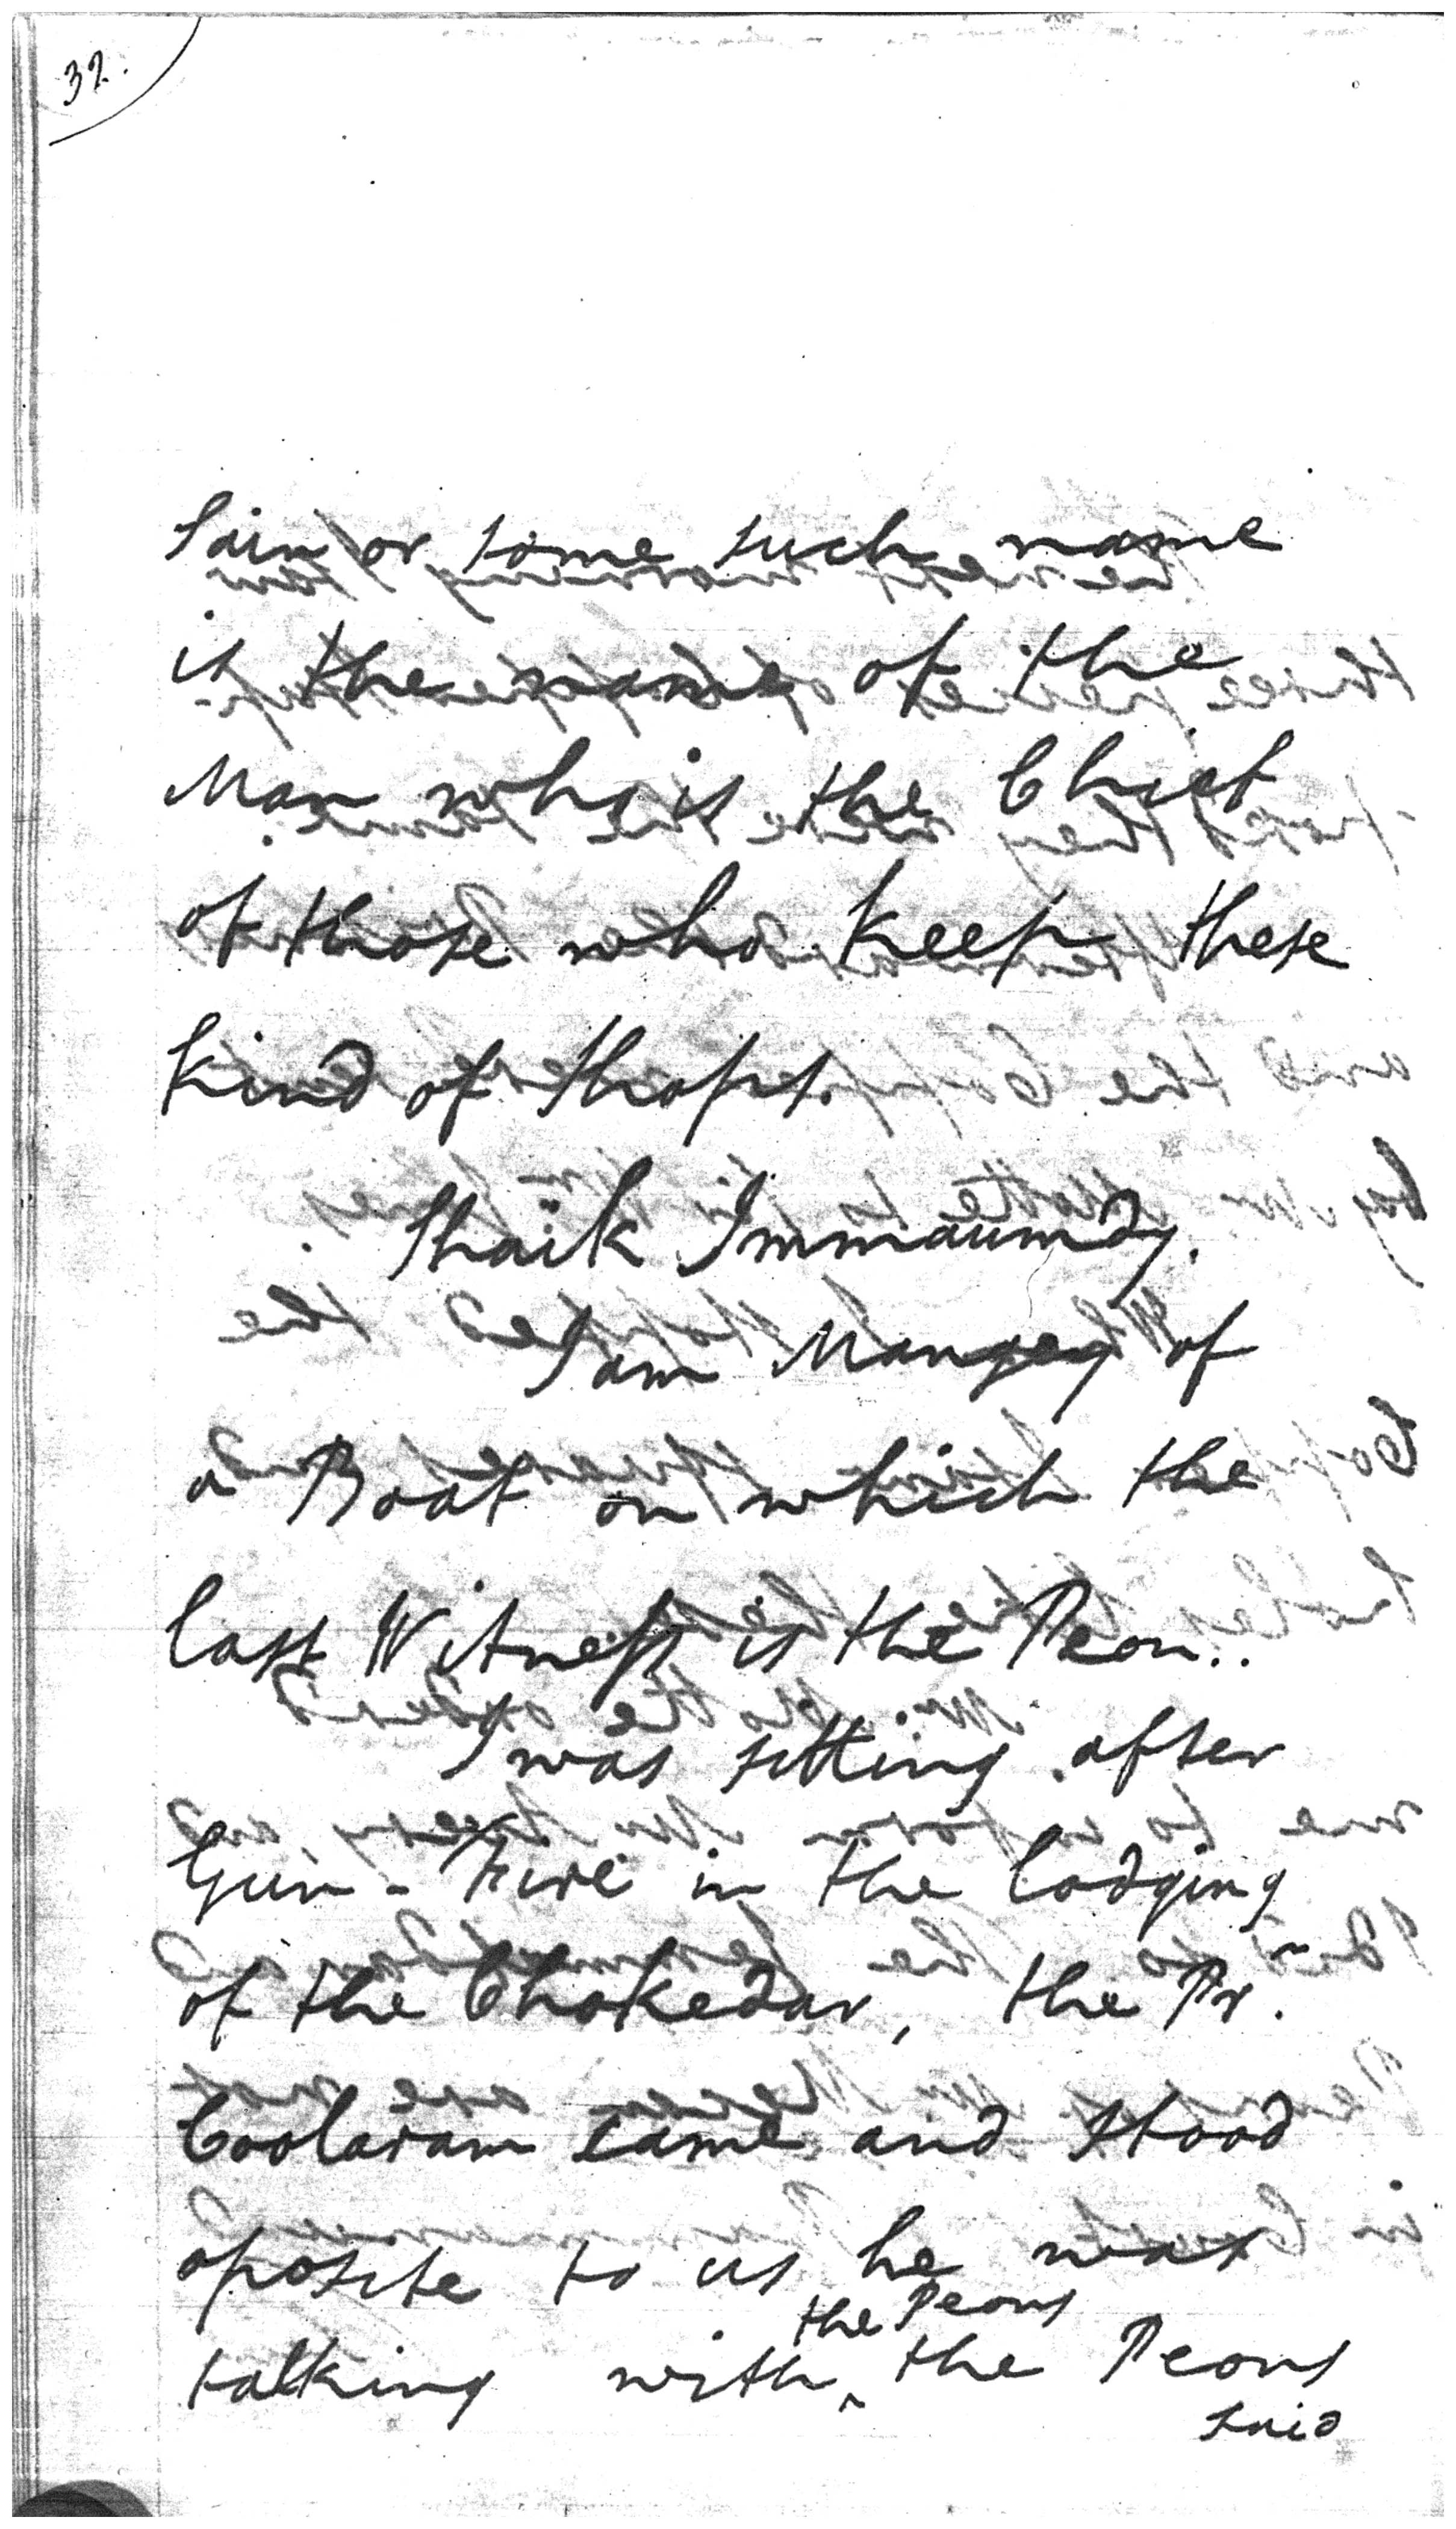 32.
Sain or some such name
is the name of the
Man who is the Chief
of those who keep these
kind of Shops.
Shaik Immaumdy.
I am Mangey of
a Boat on which the
last Witness is the Peon..
I was sitting after
Gun-Fire in the lodging
of the Chokedar, the Pr.
Coolaram came and stood
oposite to us he was
the Peons
talking with ^ the Peons
said